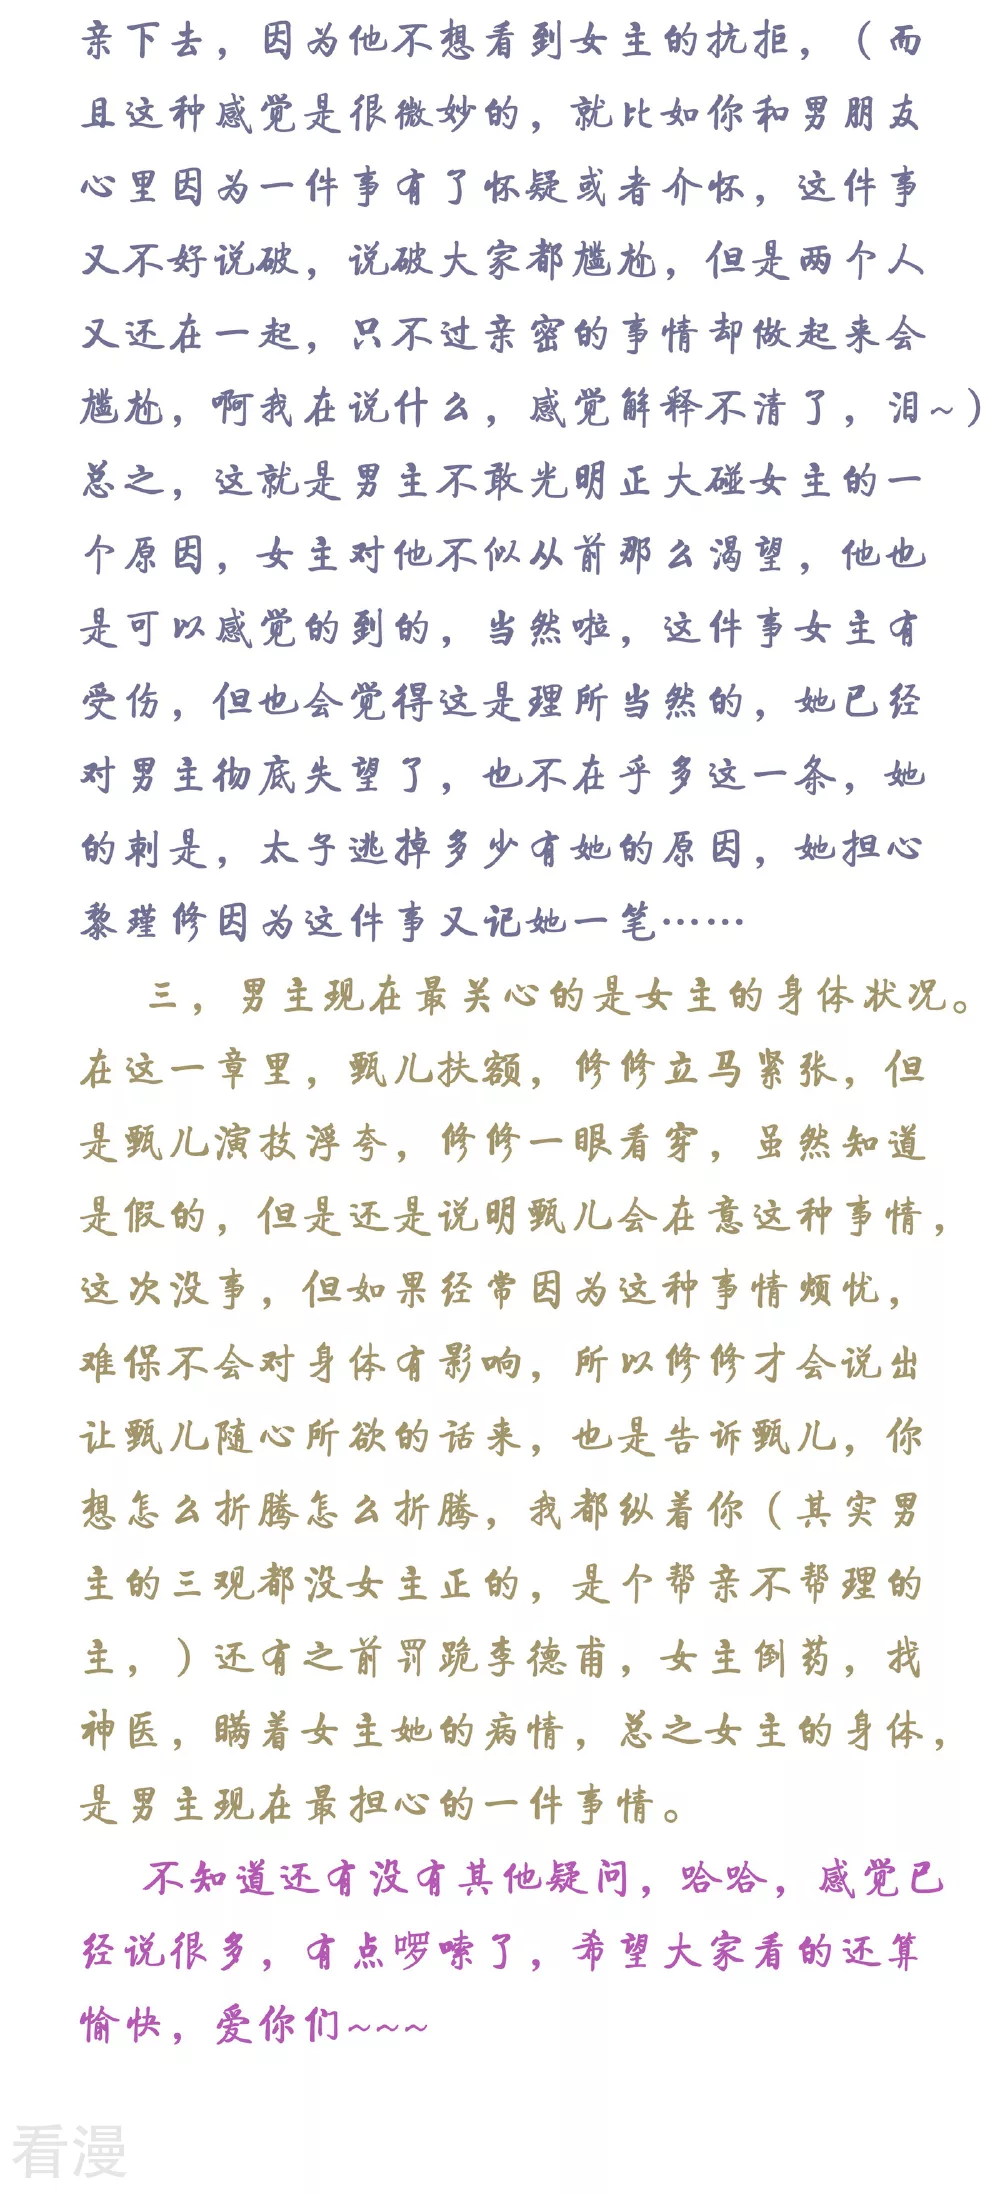 亲下去，因为他不想看到女主的抗拒，（而
且这种感觉是很微妙的，就比如你和男朋友
心里因为一件事有了怀疑或者介怀，这件事
又不好说破，说破大家都尴尬，但是两个人
又还在一起，只不过亲密的事情却做起来会
尴尬，啊我在说什么，感觉解释不清了，泪~）
总之，这就是男主不敢光明正大碰女主的一
个原因，女主对他不似从前那么渴望，他也
是可以感觉的到的，当然啦，这件事女主有
受伤，但也会觉得这是理所当然的，她已经
对男主彻底失望了，也不在乎多这一条，她
的刺是，太子逃掉多少有她的原因，她担心
黎瑾修因为这件事又记她一笔……
三，男主现在最关心的是女主的身体状况。
在这一章里，甄儿扶额，修修立马紧张，但
是甄儿演技浮夸，修修一眼看穿，虽然知道
是假的，但是还是说明甄儿会在意这种事情，
这次没事，但如果经常因为这种事情烦忧，
难保不会对身体有影响，所以修修才会说出
让甄儿随心所欲的话来，也是告诉甄儿，你
想怎么折腾怎么折腾，我都纵着你（其实男
主的三观都没女主正的，是个帮亲不帮理的
主，）还有之前罚跪李德甫，女主倒药，找
神医，瞒着女主她的病情，总之女主的身体，
是男主现在最担心的一件事情。
不知道还有没有其他疑问，哈哈，感觉已
经说很多，有点啰嗦了，希望大家看的还算
愉快，爱你们~~~
看漫